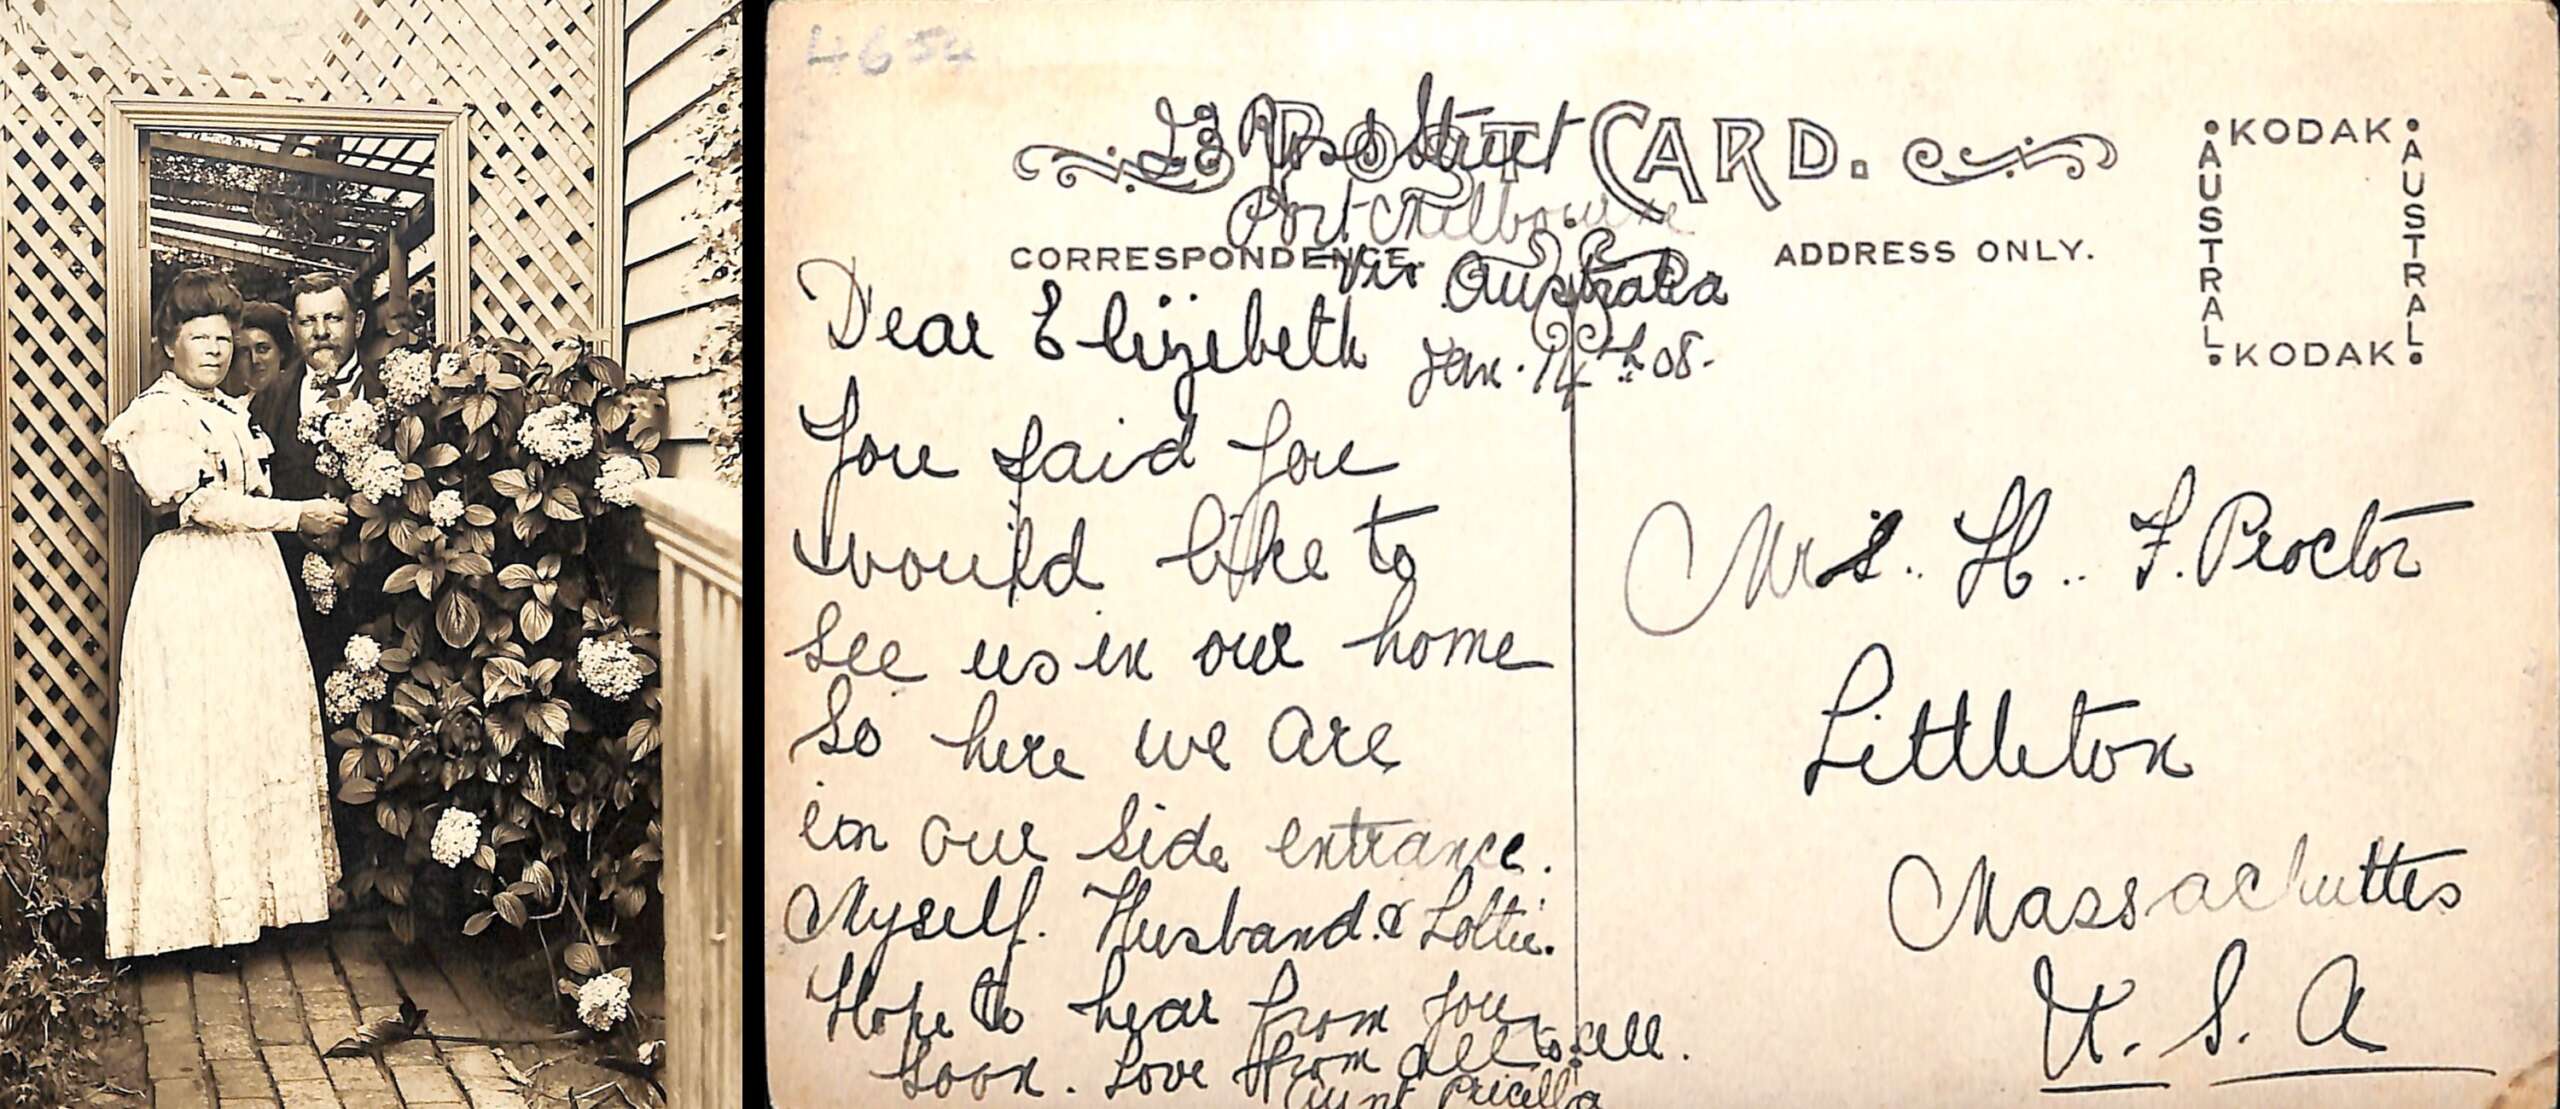 4654
POST CARD.
Ross Street
Port Melbourne
Vic Australia
CORRESPONDENCE.
ADDRESS ONLY.
KODAK
AUSTRAL
AUSTRAL
KODAK
Jan. 14th 08.
Dear Elizebeth
You said you
would like to
see us in our home
So here we are
in our side entrance.
Myself. Husband. & Lottie.
Hope to hear from you
soon. Love from all to all.
Aunt Pricella
Mrs. H.. F. Proctor
Littleton
Massachuttes
U. S. A